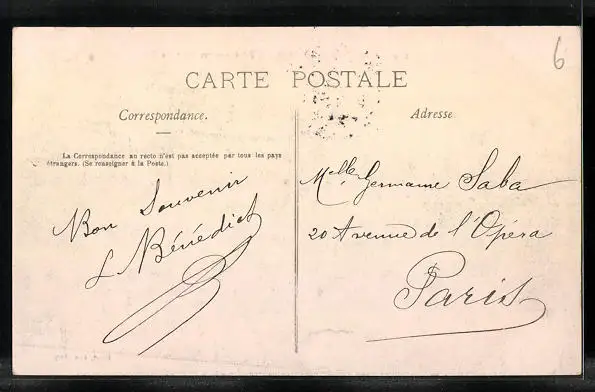 6
CARTE POSTALE
Correspondance.
La Correspondance au recto n'est pas acceptée par tous les pays
étrangers. (Se renseigner à la Poste.)
Bon Souvenir
L Bénédict
Adresse
Melle Germaine Saba
20 Avenue de l'Opéra
Paris